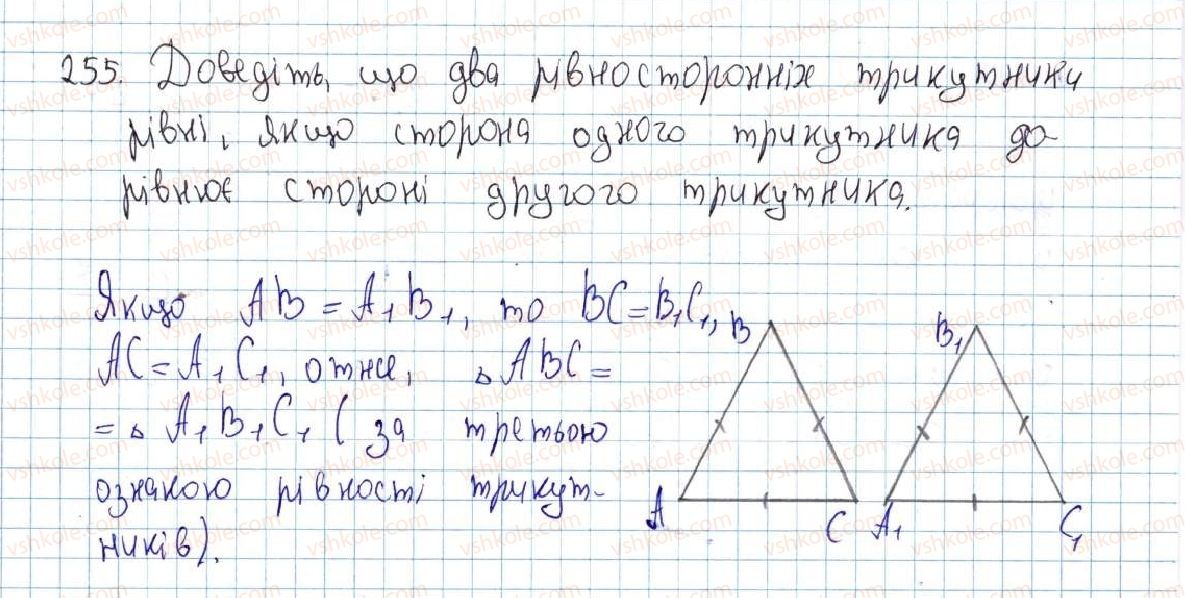 255. Доведіть, що два рівносторонніх трикутники
рівні, якщо сторона одного трикутника до-
рівнює стороні другого трикутника.
Якщо AB = A₁B₁, то BC = B₁C₁,
AC = A₁C₁, отже, ▵ ABC =
= ▵ A₁B₁C₁ ( за третьою
ознакою рівності трикут-
ників).
B
B₁
A
C
A₁
C₁
vshkole.com